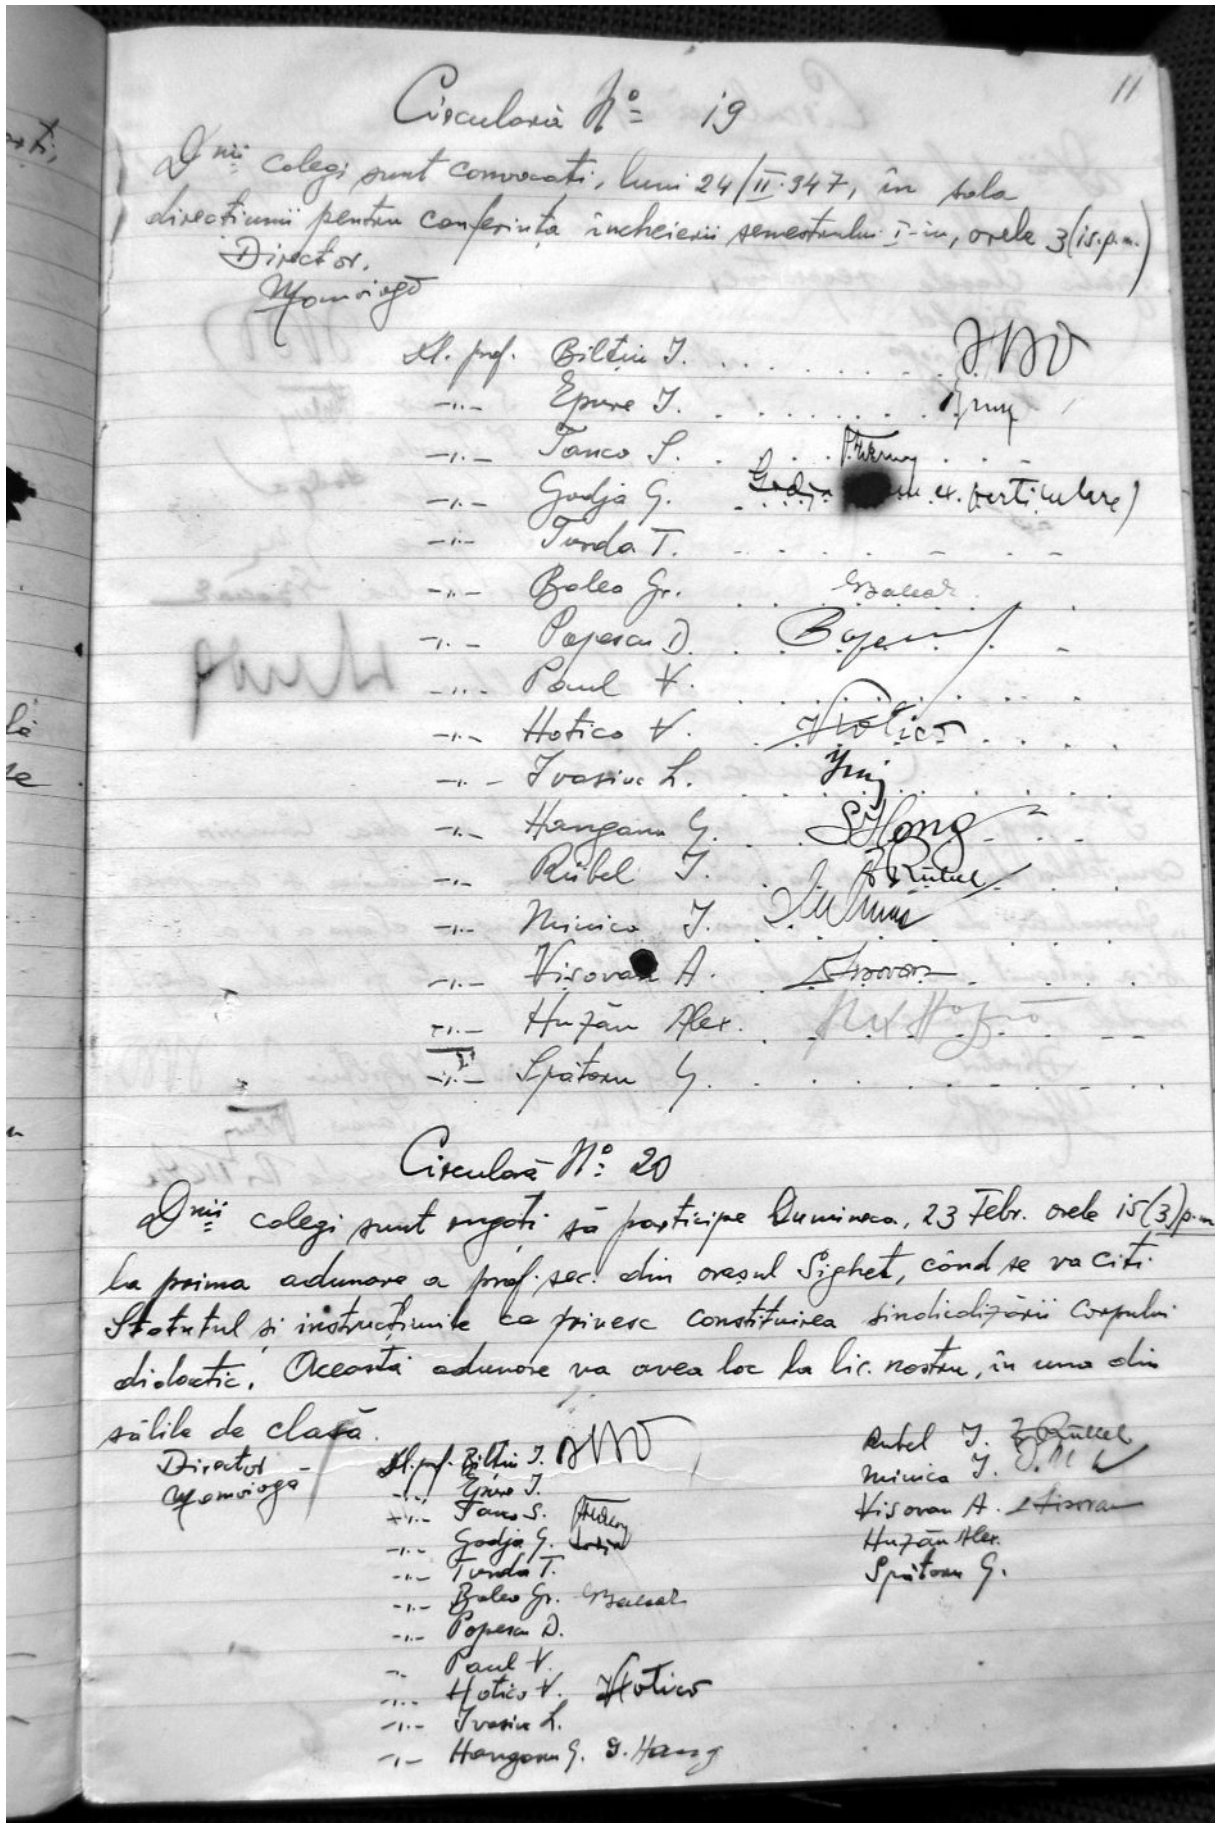 11
Circulara Nº 19
Dnii colegi sunt convocati, luni 24/II.947, în sala
directiunii pentru conferința încheierii semestrului I-iu, orele 3(15.p.m.)
Director,
Dl. prof. Bilțiu I.
-"- Epure I.
-"- Tanco S.
-"- Godja G. Godja ex. particulare)
-"- Turda T.
-"- Balea Gr.
-"- Popescu D.
-"- Paul V.
-"- Hotico V. VHotico
-"- Ivasiuc L.
-"- Hanganu G. GHang
-"- Rübel I. Rübel
-"- Minica I.
-"- Vișovan A. AVisovan
-"- Huzău Alex.
-"- Spătaru G.
Circulară Nº 20
Dnii colegi sunt rugați să participe Duminica, 23 Febr. orele 15(3)p.m
la prima adunare a prof. sec. din orașul Sighet, când se va citi
Statutul și instrucțiunile ce privesc constituirea sindicalizării Corpului
didactic. Aceasta adunare va avea loc la lic. nostru, în una din
sălile de clasă.
Director
Dl. prof. Bilțiu I.
-"- Epure I.
-"- Tanco S.
-"- Godja G. Godja
-"- Turda T.
-"- Balea Gr.
-"- Popescu D.
-"- Paul V.
-"- Hotico V. VHotico
-"- Ivasiuc L.
-"- Hanganu G. G. Hang
Rubel I. Rübel
Minica I.
Visovan A. AVisovan
Huzău Alex.
Spătaru G.